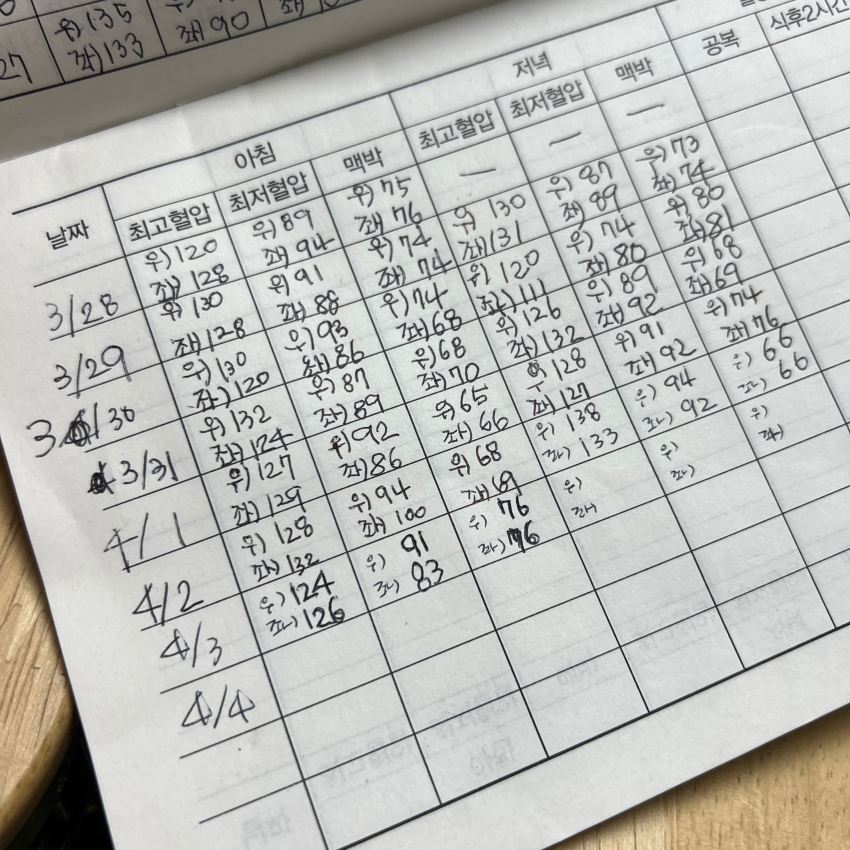 위)135
좌)133
좌)90
27
아침
저녁
날짜
최고혈압
최저혈압
맥박
최고혈압
최저혈압
맥박
공복
식후2시간
3/28
우)120
좌)128
우)89
좌)94
우)75
좌)76
—
—
—
3/29
우)130
좌)128
우)91
좌)88
우)74
좌)74
우)130
좌)131
우)87
좌)89
우)73
좌)74
3/30
우)130
좌)120
우)93
좌)86
우)74
좌)68
우)120
좌)111
우)74
좌)80
우)80
좌)81
3/31
우)132
좌)124
우)87
좌)89
우)68
좌)70
우)126
좌)132
우)89
좌)92
우)68
좌)69
4/1
우)127
좌)129
우)92
좌)86
우)65
좌)66
우)128
좌)127
우)91
좌)92
우)74
좌)76
4/2
우)128
좌)132
우)94
좌)100
우)68
좌)69
우)138
좌)133
우)94
좌)92
우)66
좌)66
4/3
우)124
좌)126
우)91
좌)83
우)76
좌)76
우)
좌)
우)
좌)
우)
좌)
4/4